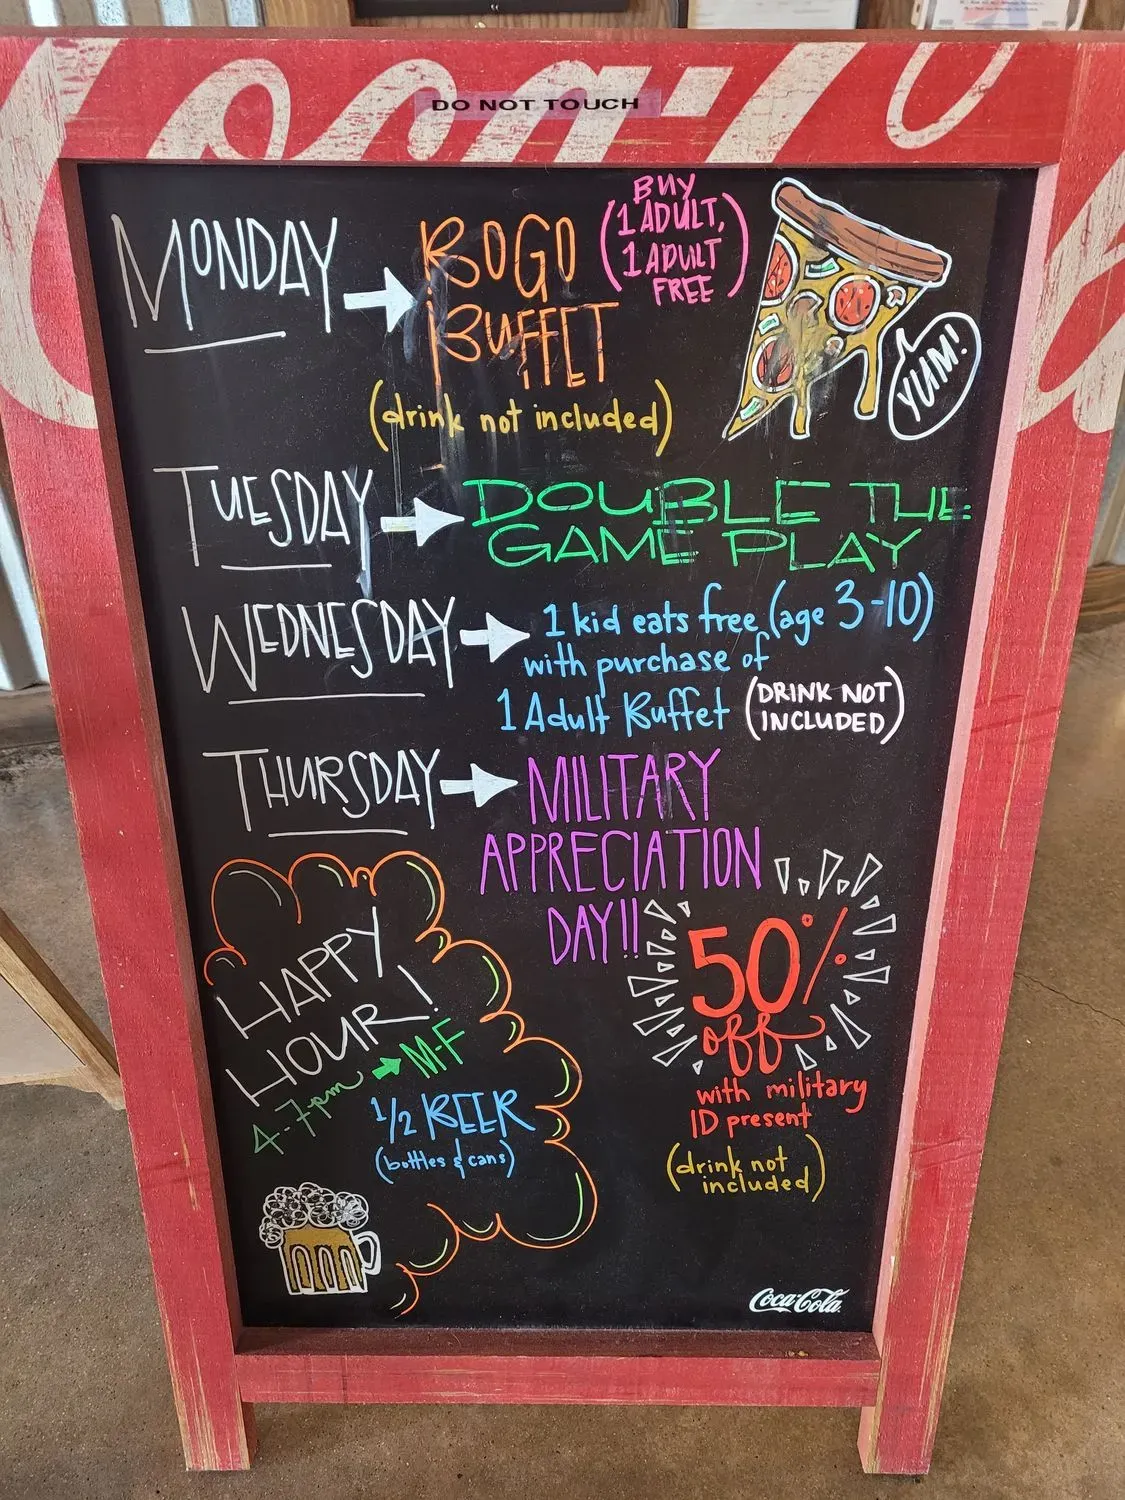 Coca-Co
DO NOT TOUCH
MONDAY
BOGO
BUFFET
(BUY
1 ADULT,
1 ADULT
FREE)
YUM!
(drink not included)
TUESDAY
DOUBLE THE
GAME PLAY
WEDNESDAY
1 kid eats free (age 3-10)
with purchase of
1 Adult Buffet
(DRINK NOT
INCLUDED)
THURSDAY
MILITARY
APPRECIATION
DAY!!
50%
off
with military
ID present
(drink not
included)
HAPPY
HOUR!
4-7pm M-F
1/2 BEER
(bottles & cans)
Coca-Cola